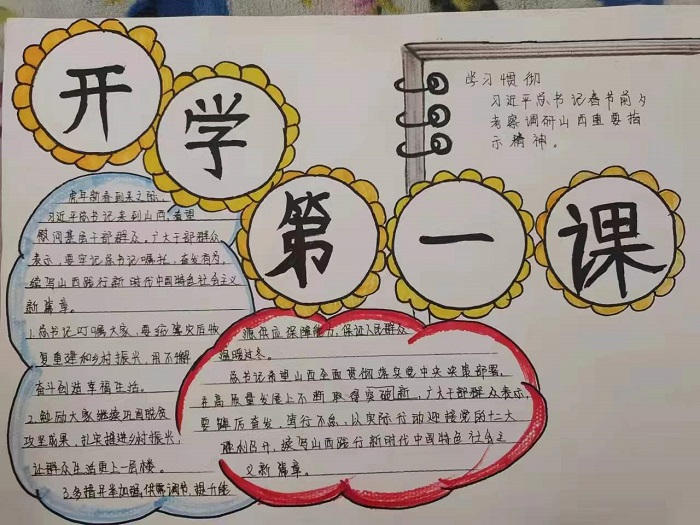 开学第一课
学习贯彻
习近平总书记春节前夕
考察调研山西重要指
示精神。
虎年新春到来之际,
习近平总书记来到山西,看望
慰问基层干部群众。广大干部群众
表示,要牢记总书记嘱托,奋发有为,
续写山西践行新时代中国特色社会主义
新篇章。
1.总书记叮嘱大家,要抓灾后恢
复重建和乡村振兴,用不懈
奋斗创造幸福生活。
2.勉励大家继续巩固脱贫
攻坚成果,扎实推进乡村振兴,
让群众生活更上一层楼。
3.多措并举加强供需调节,提升能
源供应保障能力,保证人民群众
温暖过冬。
总书记希望山西全面贯彻落实党中央决策部署,
在高质量发展上不断取得突破新,广大干部群众表示,
要踔厉奋发,笃行不怠,以实际行动迎接党的二十大
胜利召开,续写山西践行新时代中国特色社会主
义新篇章。